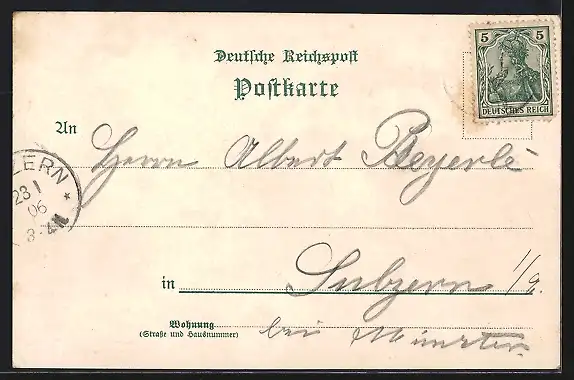 Deutsche Reichspost
Postkarte
5 5
DEUTSCHES REICH
An Herrn Albert Beyerle
ZERN *
23 1
06
in Sulzern i/a.
Wohnung bei Münster
(Straße und Hausnummer)